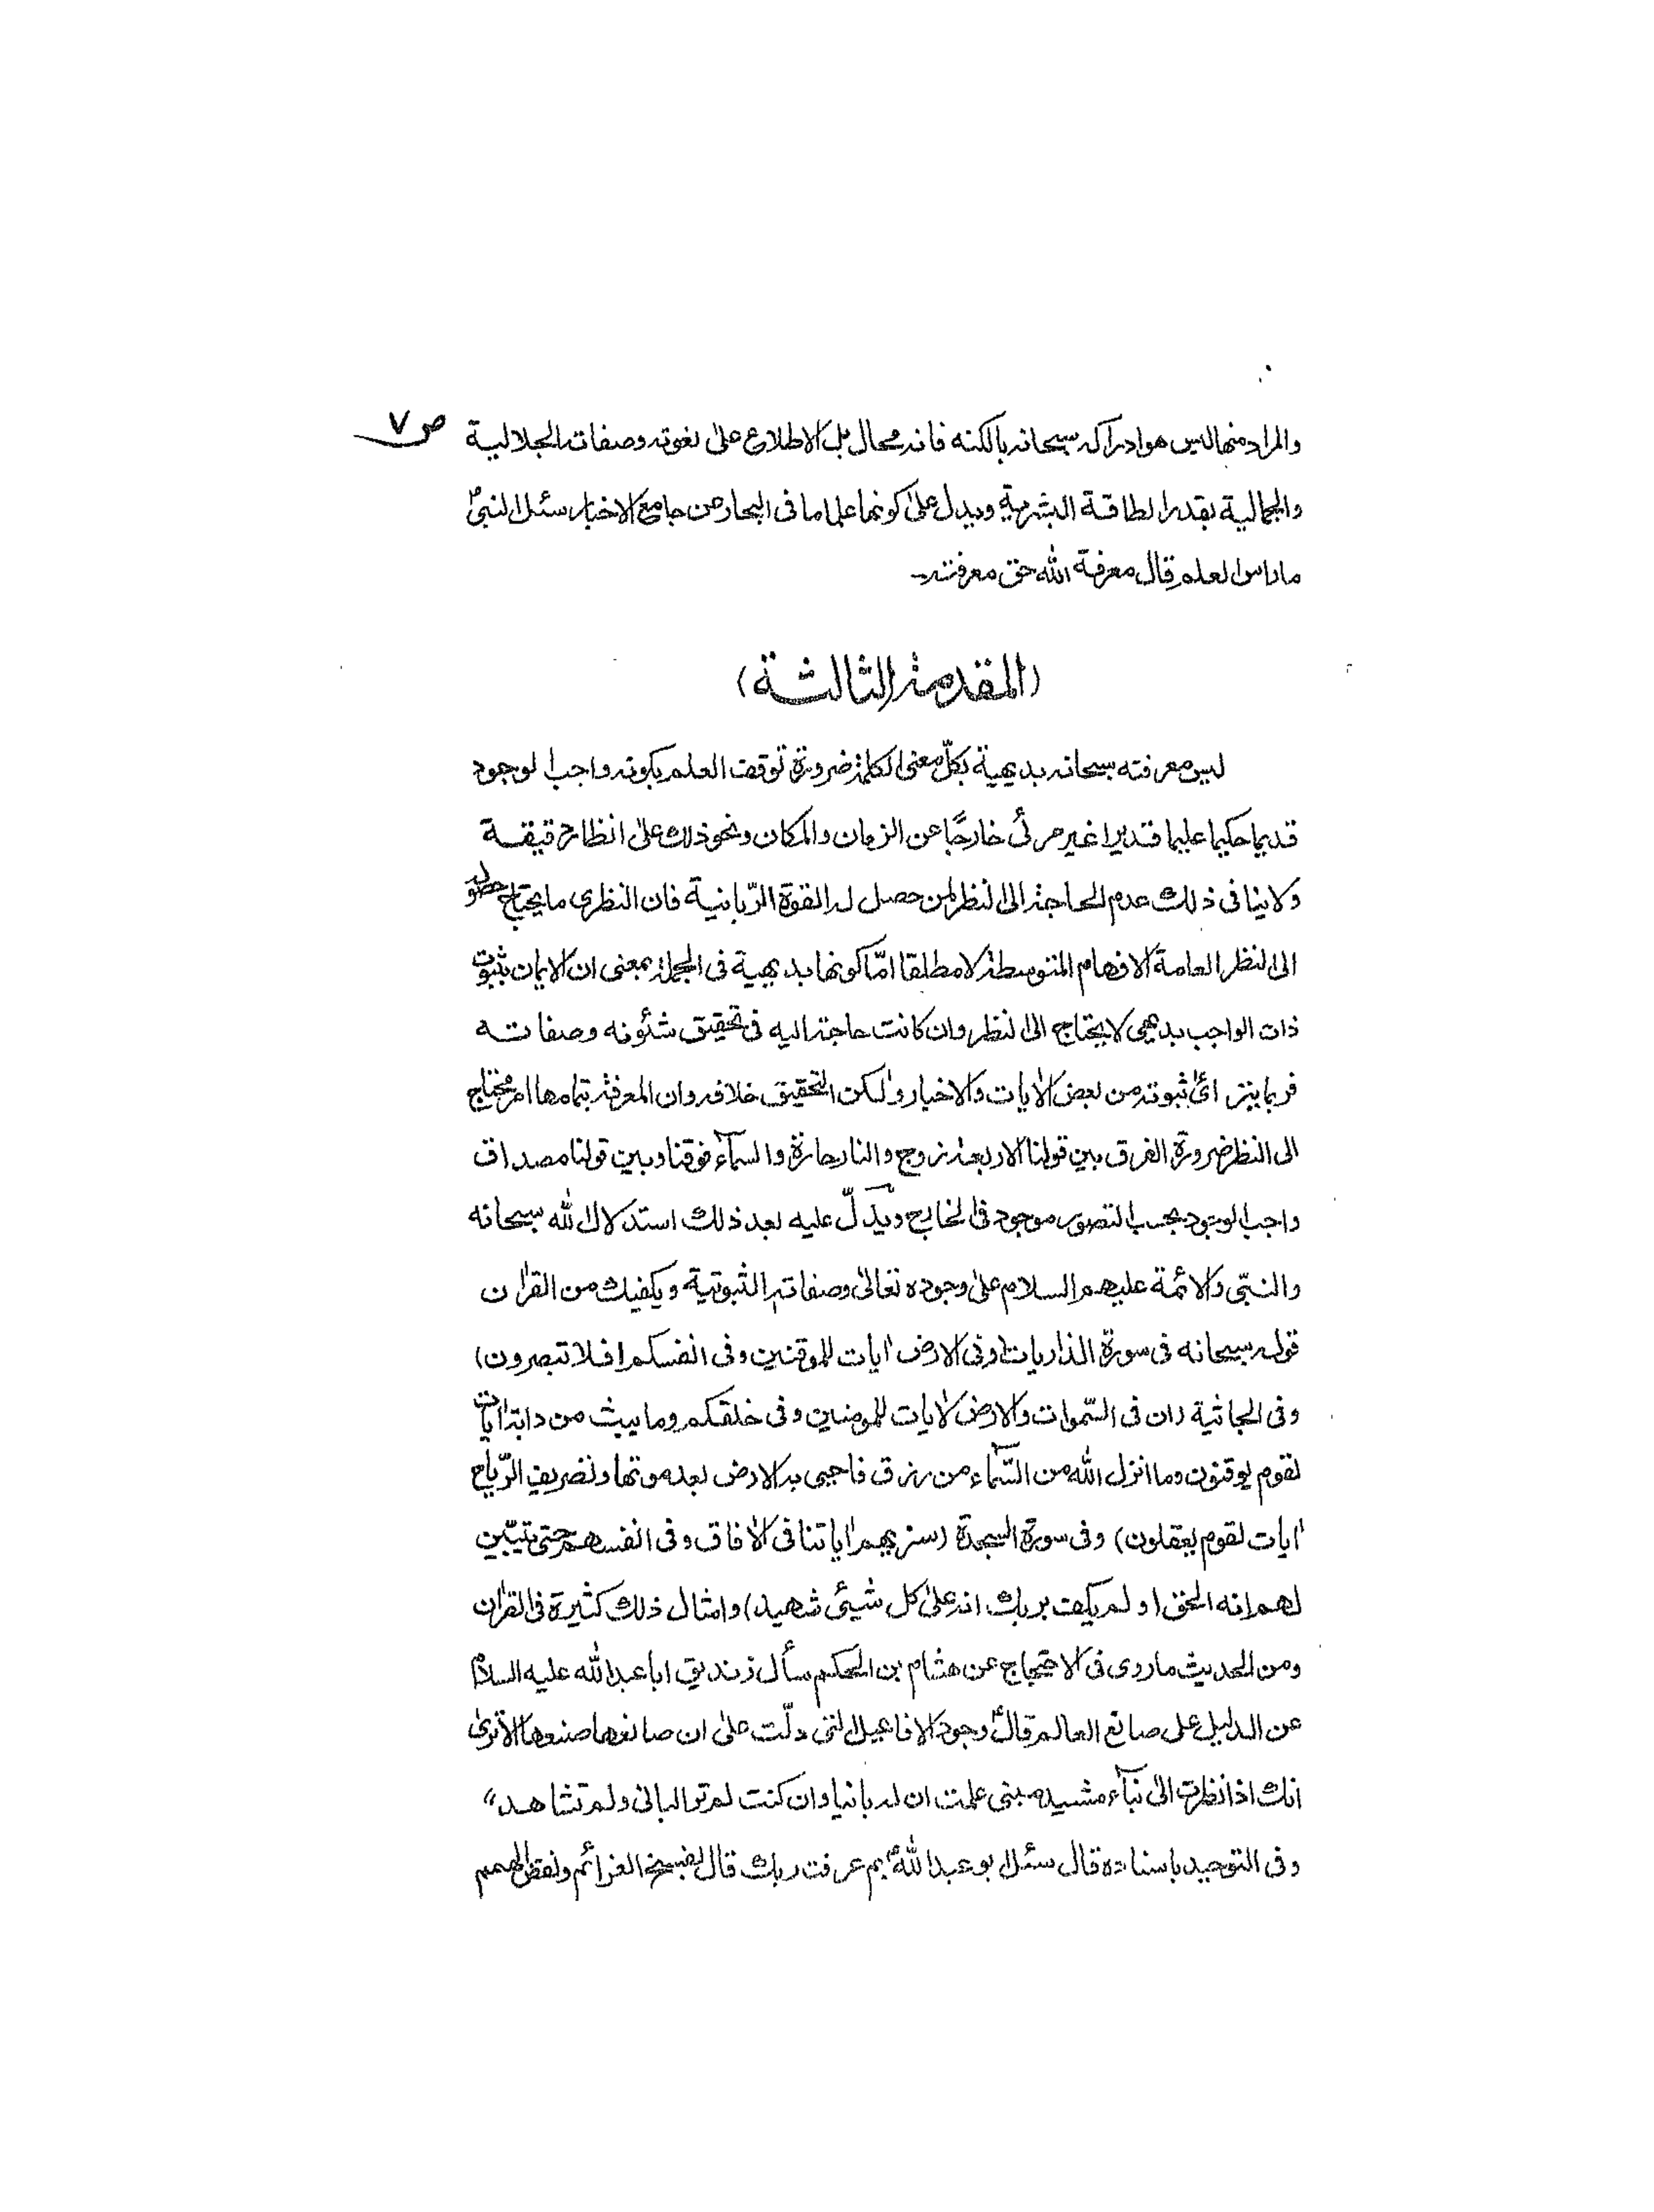 ص ٧
والمراد منها ليس هو ادراكه سبحانه بالكنه فانه محال بل الاطلاع على نعوته وصفاته الجلالية
والجمالية بقدر الطاقة البشرية ويدل على كونها علما ما فى البحار من جامع الاخبار سئل النبىؐ
ما راس العلم قال معرفة الله حق معرفته۔
(المقدمة الثالثة)
ليس معرفته سبحانه بديهية بكلّ معنى الكلمة ضرورة توقف العلم بكونه واجب الوجود
قديما حكيما عليما قديرا غير مرئى خارجًا عن الزمان والمكان ونحو ذلك على انظار دقيقة
ولا ينافى ذلك عدم الحاجة الى النظر لمن حصل له القوة الرّبانية فان النظرى ما يحتاج حصوله
الى النظر العامة الافهام المتوسطة لا مطلقا امّا كونها بديهية فى الجملة بمعنى ان الايمان بثبوت
ذات الواجب بديهى لا يحتاج الى النظر وان كانت حاجة اليه فى تحقيق شئونه وصفاته
فربما يتراءى ثبوته من بعض الاٰيات والاخبار ولٰكن التحقيق خلافه وان المعرفة بتمامها امر محتاج
الى النظر ضرورة الفرق بين قولنا الاربعة زوج والنار حارة والسمآء فوقنا وبين قولنا مصداق
واجب الوجود بحسب التصور موجود فى الخارج ويدلّ عليه بعد ذلك استدلال الله سبحانه
والنبّى والائمة عليهم السلام على وجوده تعالىٰ وصفاته الثبوتية ويكفيك من القراٰن
قوله سبحانه فى سورة الذاريات (وفى الارض اٰيات للموقنين وفى انفسكم افلا تبصرون)
وفى الجاثية (ان فى السّموات والارض لاٰيات للمومنين وفى خلقكم وما يبث من دابة اٰيات
لقوم يوقنون وما انزل الله من السّمآء من رزق فاحيى به الارض بعد موتها وتصريف الرّياح
اٰيات لقوم يعقلون) وفى سورة السجدة (سنريهم اٰياتنا فى الاٰفاق وفى انفسهم حتى يتبّين
لهم انه الحق او لم يكف بربك انه علىٰ كل شيئى شهيد) وامثال ذلك كثيرة فى القراٰن
ومن الحديث ما روى فى الاحتجاج عن هشام بن الحكم سأل زنديق ابا عبد الله عليه السلام
عن الدليل على صانع العالم قالؑ وجود الافاعيل التى دلّت علىٰ ان صانعها صنعها الاترىٰ
انك اذا نظرت الىٰ بنآء مشيد مبنى علمت ان له بانيا وان كنت لم تر البانى ولم تشاهد"
وفى التوحيد باسناده قال سئل ابو عبد اللهؑ بم عرفت ربك قال بفسخ العزائم ونقض الهمم